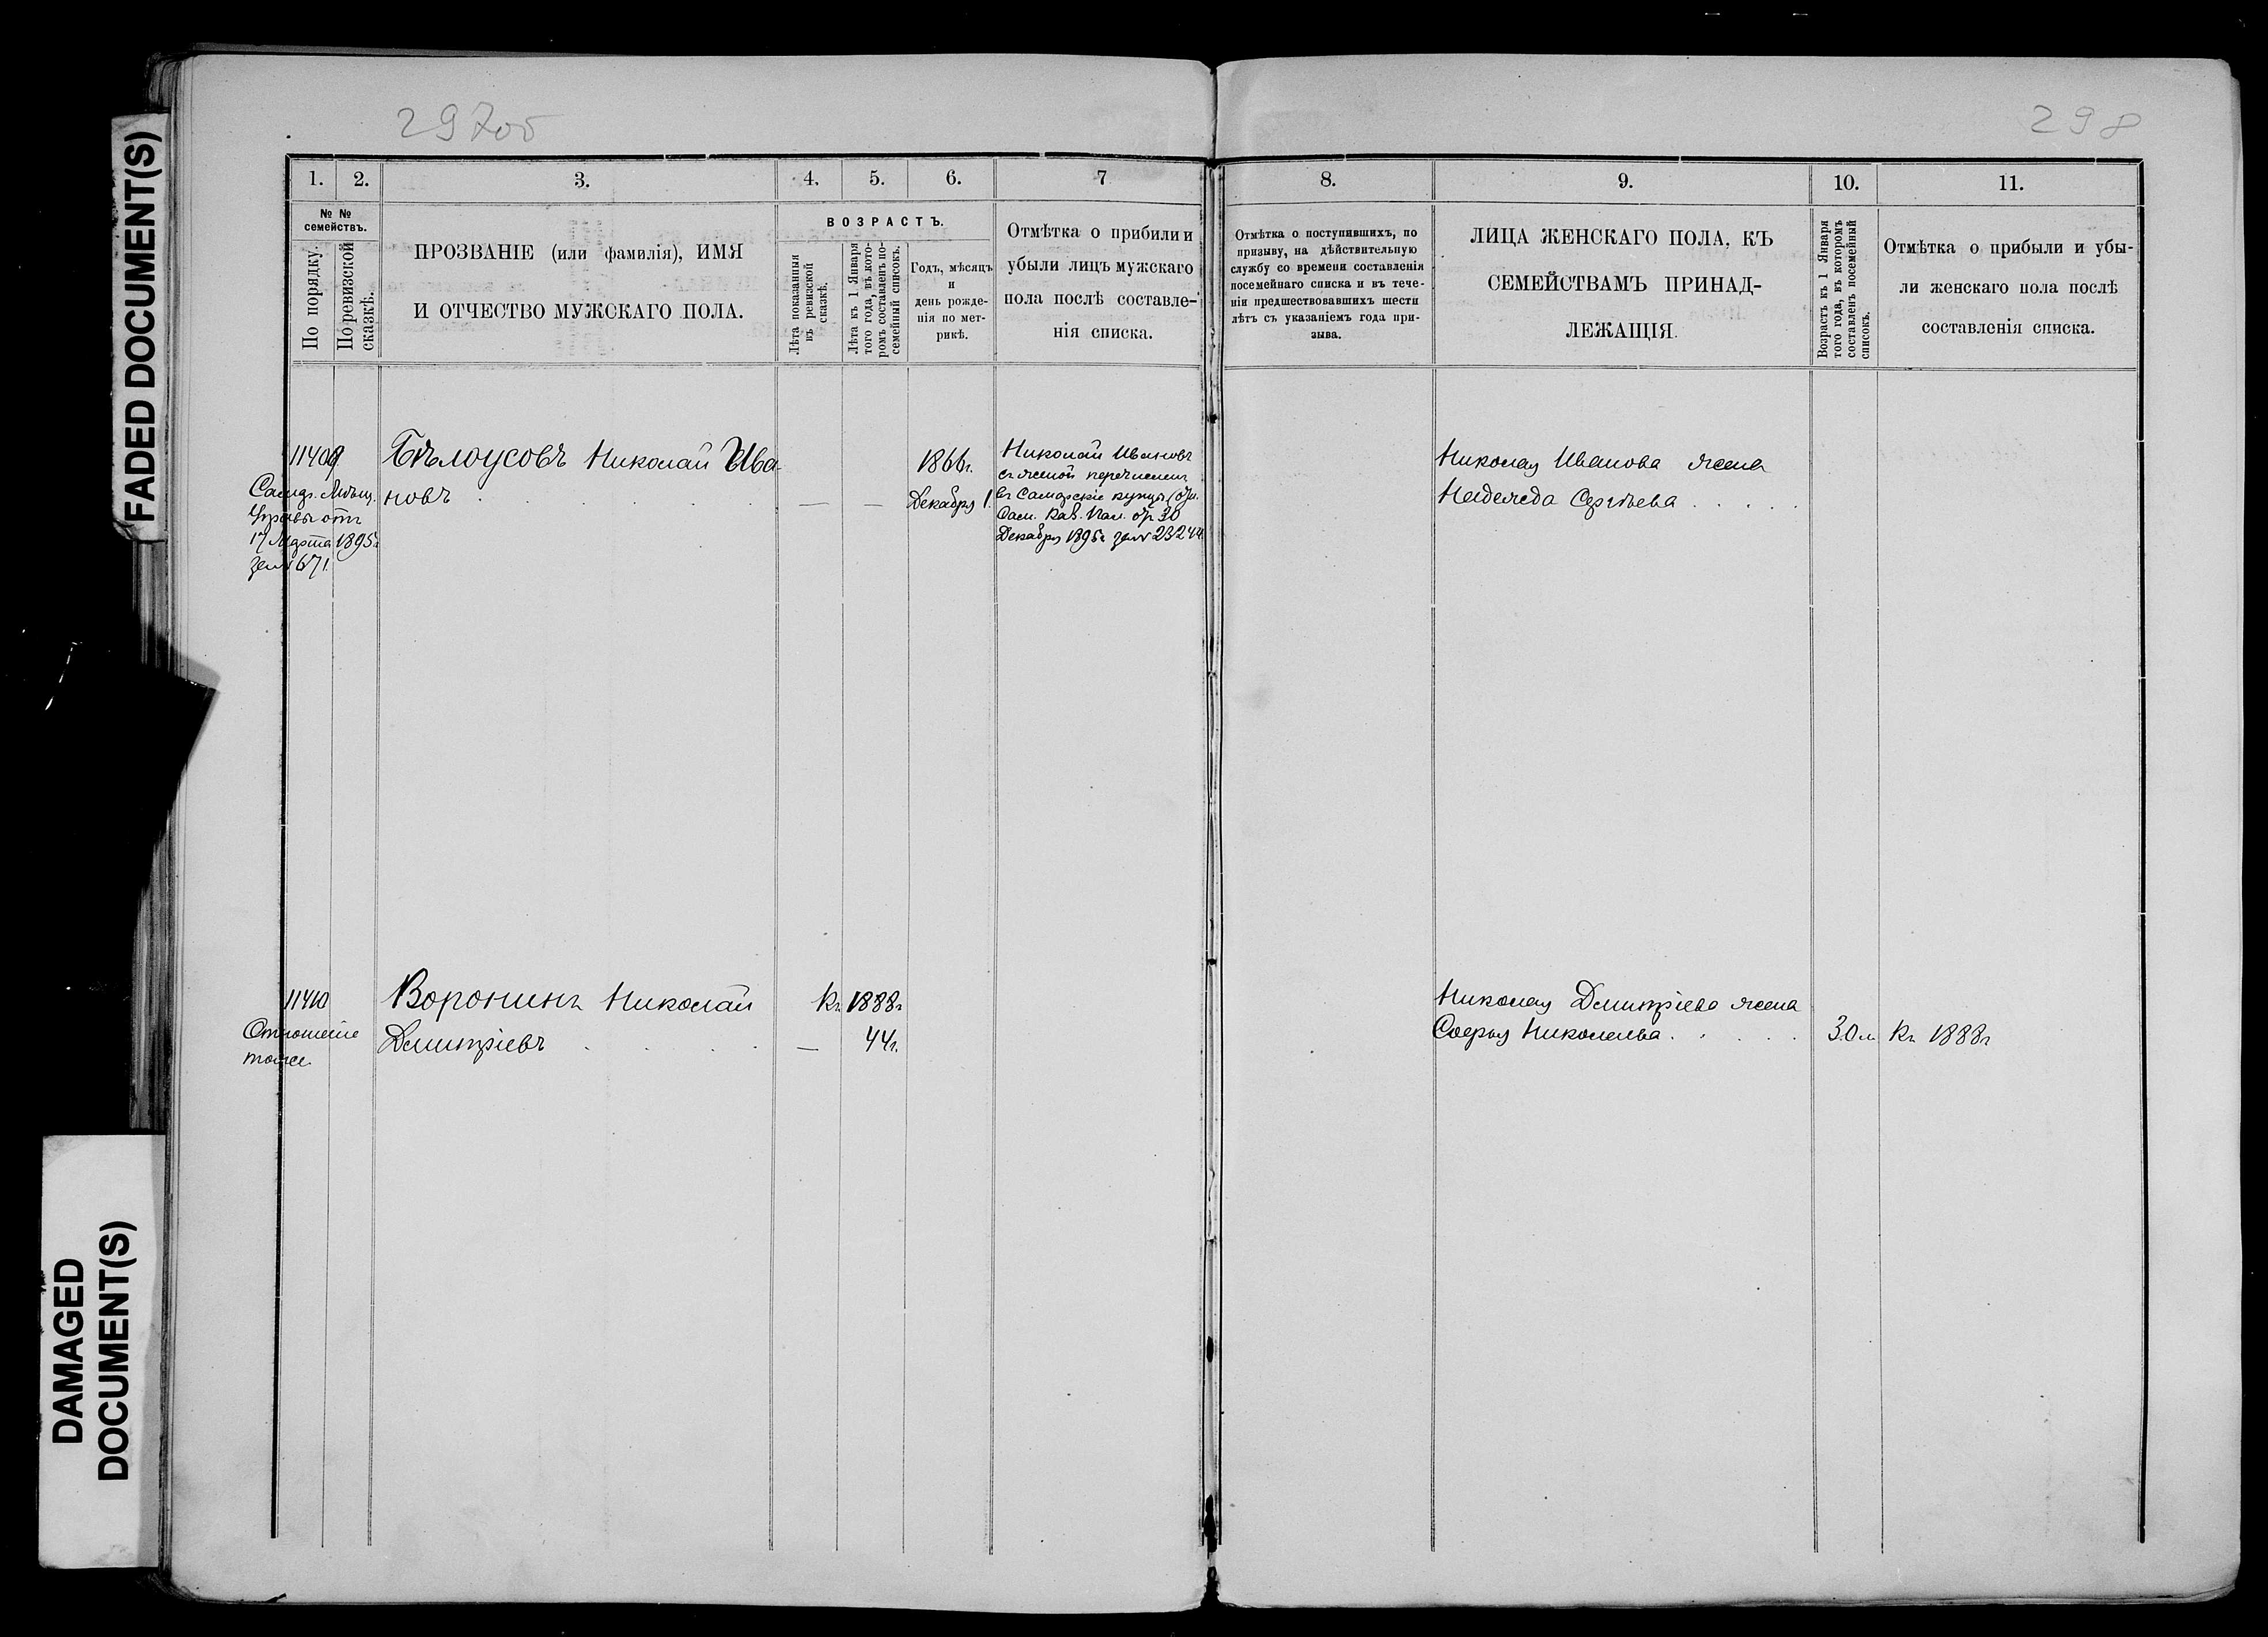 FADED DOCUMENT(S)
DAMAGED
DOCUMENT(S)
297об
298
1. 2. 3. 4. 5. 6. 7
№ №
семействъ.
По порядку.
По ревизской
сказкѣ.
ПРОЗВАНІЕ (или фамилія), ИМЯ
И ОТЧЕСТВО МУЖСКАГО ПОЛА.
ВОЗРАСТЪ.
Лѣта показанныя
въ ревизской
сказкѣ.
Лѣта къ 1 Января
того года, въ кото-
ромъ составленъ по-
семейный списокъ.
Годъ, мѣсяцъ
и
день рожде-
нія по мет-
рикѣ.
Отмѣтка о прибыли и
убыли лицъ мужскаго
пола послѣ составле-
нія списка.
11409
Самар. Мѣщ.
Управы отъ
17 Марта 1895г
за № 671
Бѣлоусовъ Николай Ива-
новъ . . . . — —
1866г.
Декабря 1.
Николай Ивановъ
съ женой перечисленъ
въ Самарскіе купцы (отн.
Сам. Каз. Пал. отъ 30
Декабря 1895г за № 23244
11410
Отношеніе
тоже
Воронинъ Николай
Дмитріевъ . . . . —
Къ 1888г
44г.
8. 9. 10. 11.
Отмѣтка о поступившихъ, по
призыву, на дѣйствительную
службу со времени составленія
посемейнаго списка и въ тече-
ніи предшествовавшихъ шести
лѣтъ съ указаніемъ года при-
зыва.
ЛИЦА ЖЕНСКАГО ПОЛА, КЪ
СЕМЕЙСТВАМЪ ПРИНАД-
ЛЕЖАЩІЯ.
Возрастъ къ 1 Января
того года, въ которомъ
составленъ посемейный
списокъ.
Отмѣтка о прибыли и убы-
ли женскаго пола послѣ
составленія списка.
Николая Иванова жена
Надежда Сергѣева . . . . .
Николая Дмитріева жена
Софья Николаева . . . . . 30 л. Къ 1888г